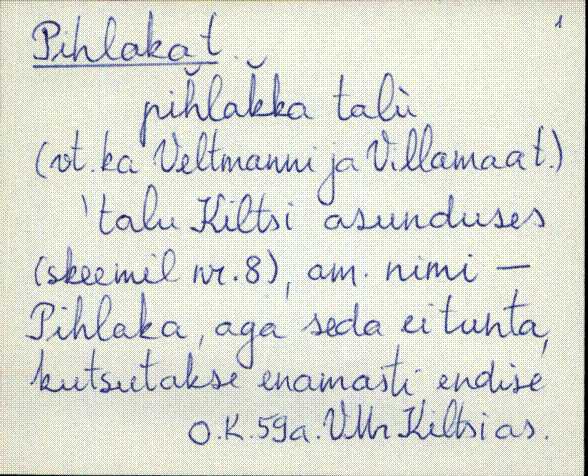 1
Pihlaka t.
pih̆lak̆ka talù
(vt. ka Veltmanni ja Villamaa t.)
'talu Kiltsi asunduses
(skeemil nr. 8), am. nimi —
Pihlaka, aga seda ei tunta,
kutsutakse enamasti endise
O.K. 59a. VMr Kiltsi as.